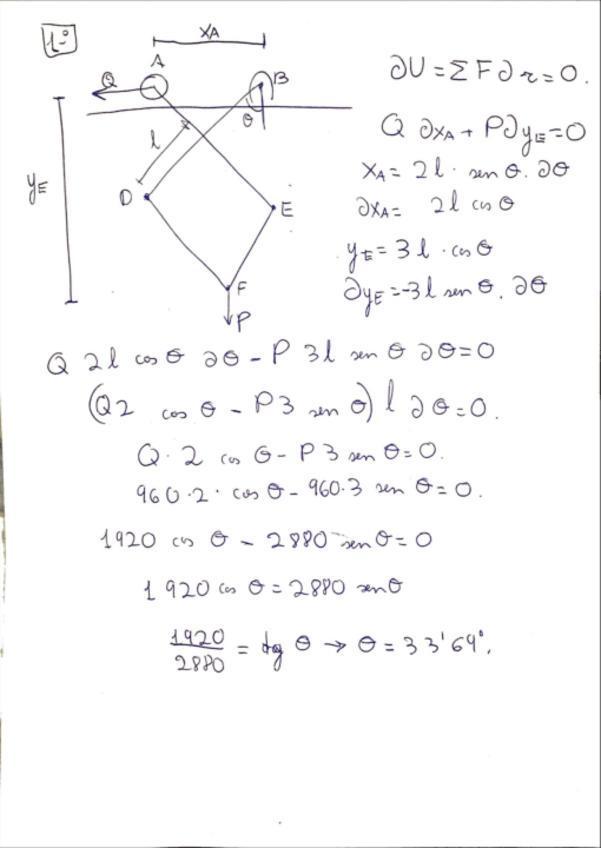 1º
XA
A
Q
B
θ
l
yE
D
E
F
P
∂U = Σ F ∂r = 0.
Q ∂XA + P ∂yE = 0
XA = 2l · sen θ . ∂θ
∂XA = 2l cos θ
yE = 3l · cos θ
∂yE = -3l sen θ . ∂θ
Q 2l cos θ ∂θ - P 3l sen θ ∂θ = 0
(Q2 cos θ - P3 sen θ) l ∂θ = 0.
Q · 2 cos θ - P 3 sen θ = 0.
960 · 2 · cos θ - 960 · 3 sen θ = 0.
1920 cos θ - 2880 sen θ = 0
1920 cos θ = 2880 sen θ
1920/2880 = tg θ → θ = 33'69°.